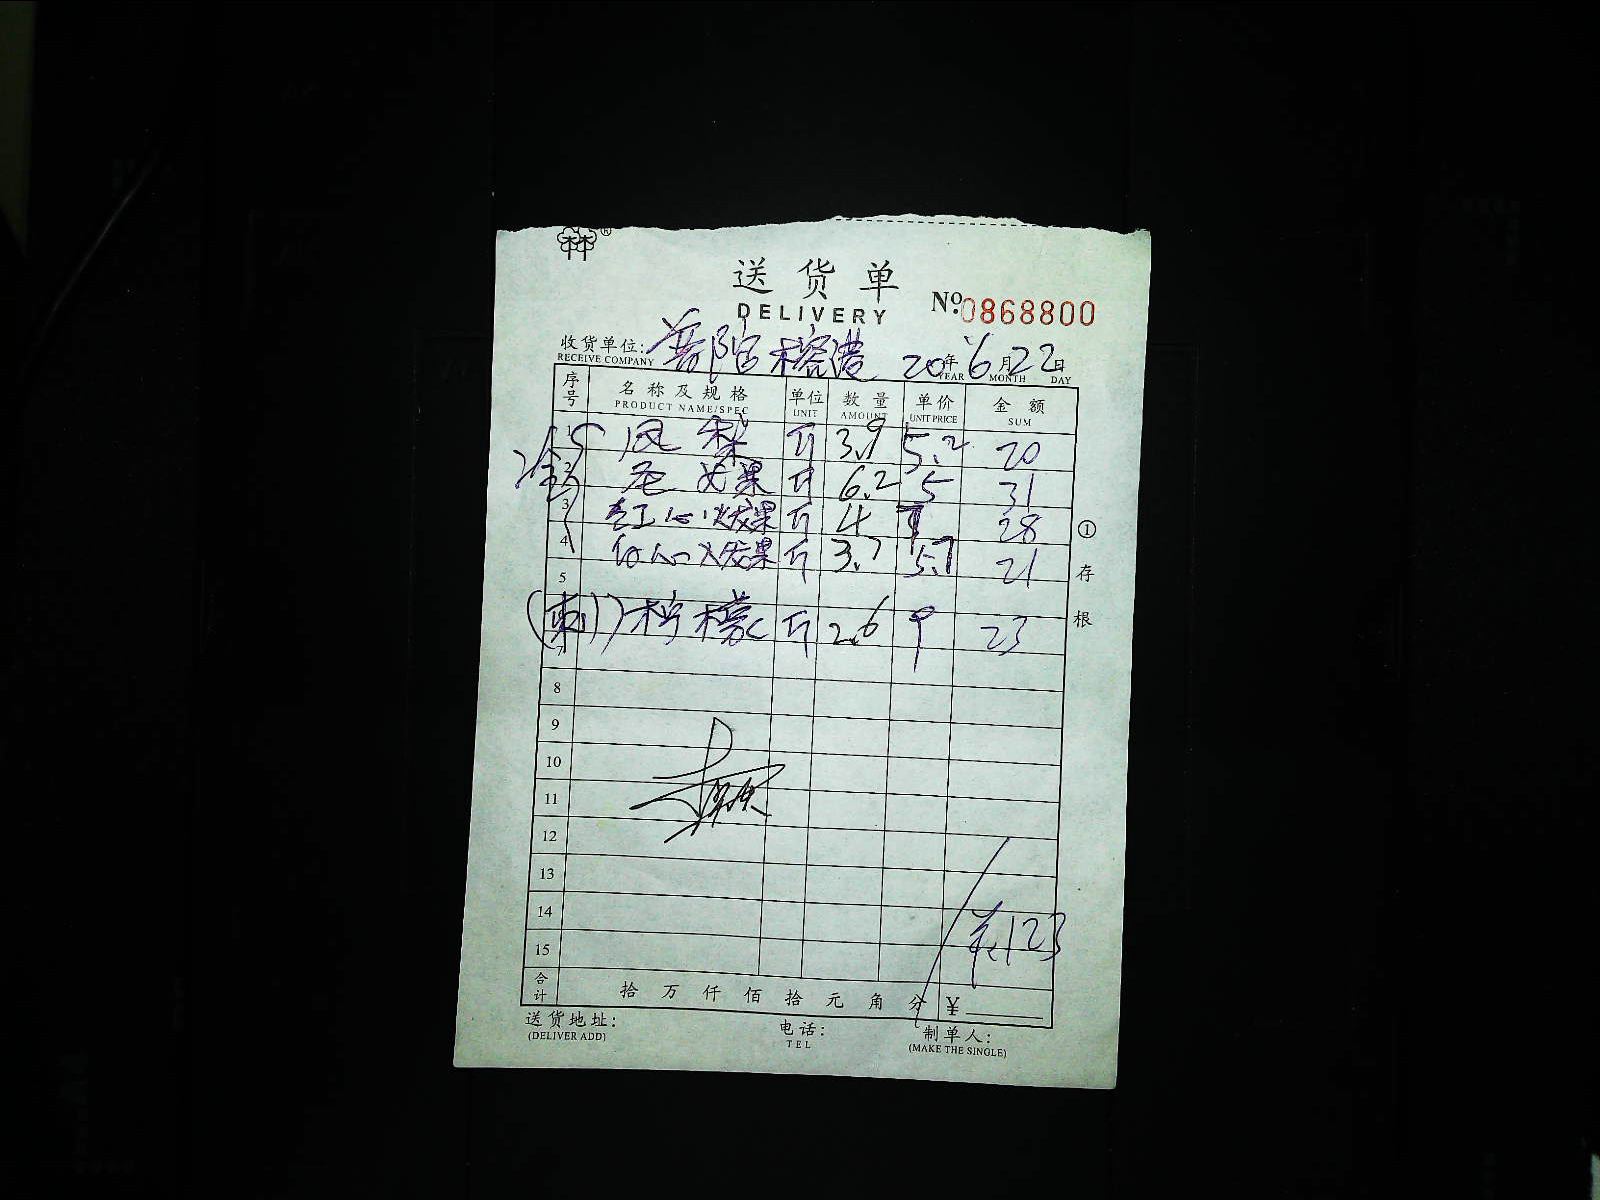 林®
送货单
DELIVERY
No.0868800
收货单位: 普陀榕港 20年 6月22日
RECEIVE COMPANY YEAR MONTH DAY
序号 名称及规格 单位 数量 单价 金额
PRODUCT NAME/SPEC UNIT AMOUNT UNIT PRICE SUM
1 凤梨 斤 3.9 5.2 20
2 圣女果 斤 6.2 5 31
3 红心火龙果 斤 4 7 28
4 白心火龙果 斤 3.7 5.7 21
5
(刺) 柠檬 斤 2.6 9 23
7
8
9
10
11
12
13
14 共123
15
合计 拾万仟佰拾元角分 ¥
送货地址: 电话: 制单人:
(DELIVER ADD) TEL (MAKE THE SINGLE)
①存根